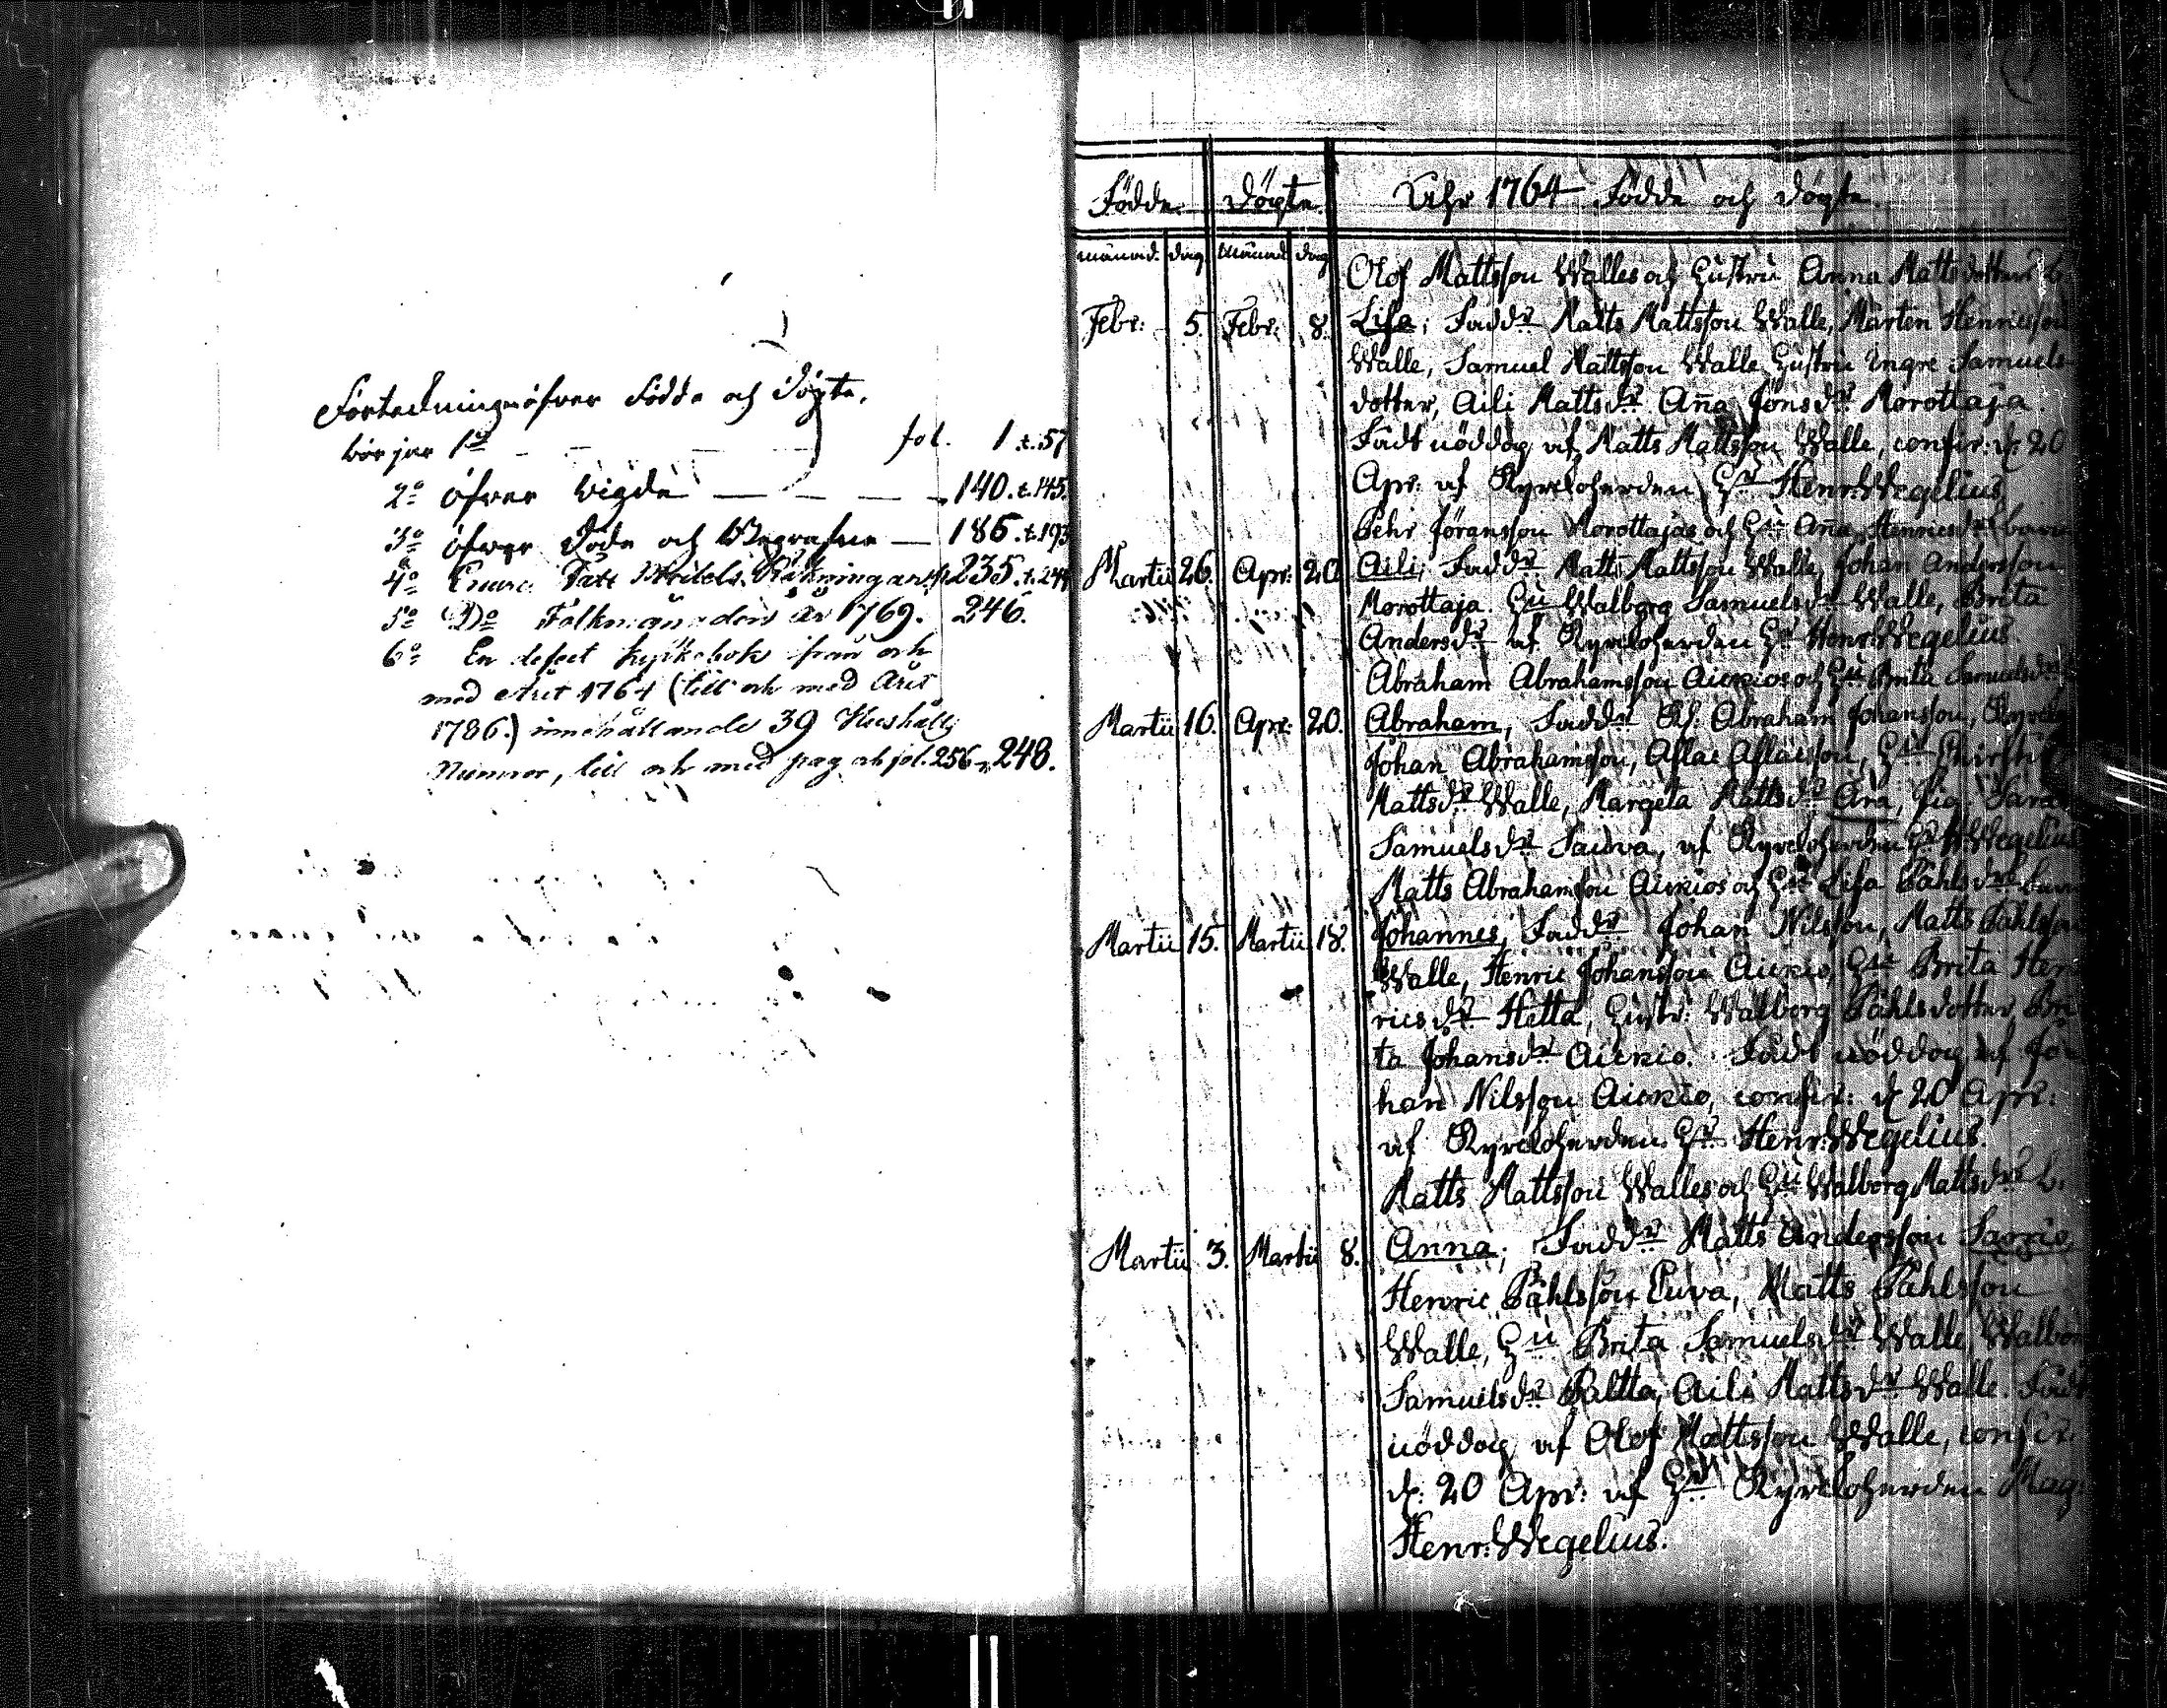 Förteckning öfver Födde och Döpte,
börjar 1o fol. 1 t. 57
2o öfver Vigde 140. t. 145.
3o öfver Döde och Begrafne 186. t. 193
4o 235. t. 244
5o Do Folkmängden år 1769. 246.
6o En defect kyrkobok från och
med Året 1764 (till och med Året
1786.) innehållande 39 Hushålls
Numror, till och med pag och fol. 256 248.
1
Födde. Döpte. Åhr 1764 Födde och döpte.
Månad. dag. Månad dag
Olof Mattsson Walles och Hustru Anna Mattsdotters b.
Febr: 5. Febr: 8. Lisa; Faddr Matts Mattsson Walle, Mårten Henricsson
Walle, Samuel Mattsson Walle Hustru Ingre Samuels
dotter, Aili Mattsdr Aña Jönsdr Morottaja.
Fådt nöddop af Matts Mattsson Walle, confir: d: 20
Apr: af Kyrckoherden Hr Henr: Wegelius.
Pehr Jöransson Morottajas och Hu Aña Henricsdrs barn
Martii 26. Apr: 20 Aili; Faddr Matts Mattsson Walle, Johan Andersson
Morottaja. Hu Walborg Samuelsdr Walle, Brita
Andersdr af Kyrckoherden Hr Henr: Wegelius.
Abraham Abrahamsson Aikios och Hu Brita Samuelsdrs
Martii 16. Apr: 20. Abraham, Faddr Abraham Johansson,
Johan Abrahamsson, Aslac Aslacsson, Hu
Mattsdr Walle, Margeta Mattsdr Ara, Pig. Sara
Samuelsdr Saidva, af Kyrckoherden Hr H: Wegelius
Matts Abrahamsson Aikios och Hu Lisa Påhlsdrs barn
Martii 15. Martii 18. Johannes, Faddr Johan Nilsson, Matts Påhlsson
Walle, Henric Johansson Aikio, Hu Brita Hen
ricsdr Hetta, Hustr: Walborg Påhlsdotter, Bri
ta Johansdr Aikio. Fådt nöddop af Jo
han Nilsson Aikio, confir: d 20 Apr:
af Kyrckoherden Hr Henr: Wegelius.
Matts Mattsson Walles och Hu Walborg Mattsdrs b.
Martii 3. Martii 8. Anna; Faddr Matts Andersson Sarrio,
Henric Påhlsson Euva, Matts Påhlsson
Walle, Hu Brita Samuelsdr Walle, Walborg
Samuelsdr Paltta, Aili Mattsdr Walle. Fådt
nöddop af Olof Mattsson Walle, confir.
d: 20 Apr: af Hr Kyrckoherden Mag:
Henr: Wegelius.